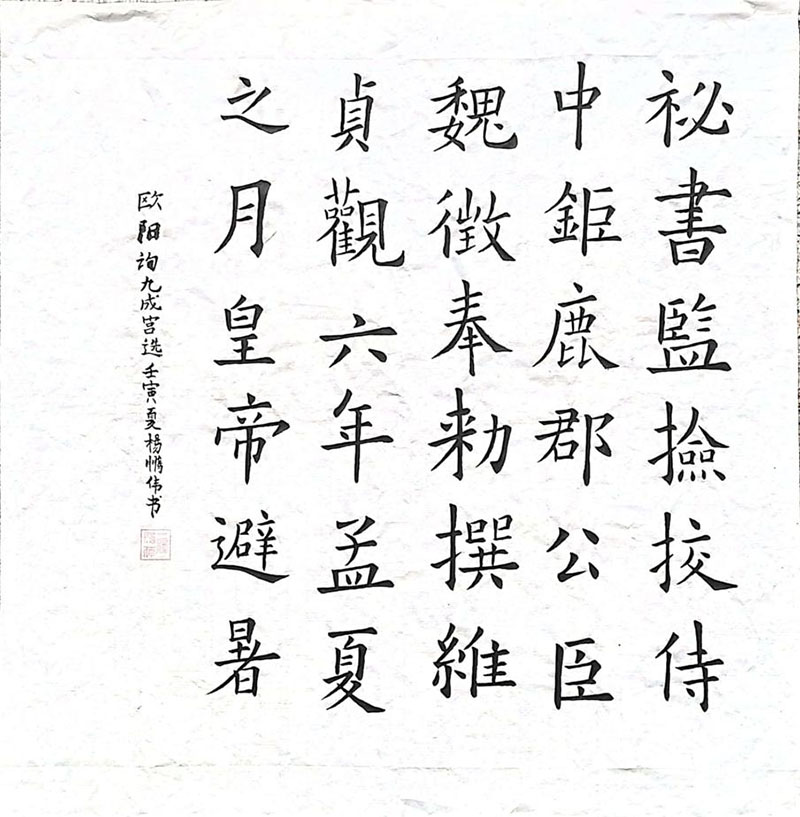 祕書監撿挍侍
中鉅鹿郡公臣
魏徵奉勑撰維
貞觀六年孟夏
之月皇帝避暑
欧阳询九成宫选壬寅夏杨伟书